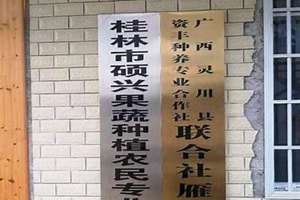 广西灵川县
资丰种养专业合作社
联合社雁
桂林市硕兴果蔬种植农民专业